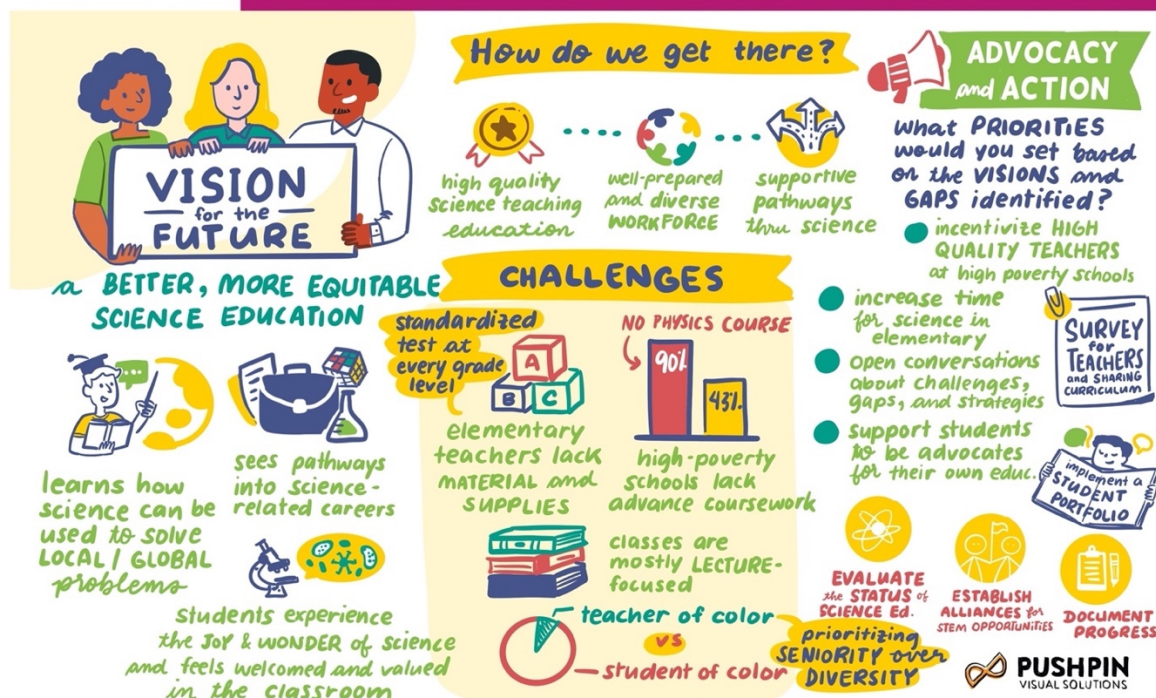 VISION
for the
FUTURE
a BETTER, MORE EQUITABLE
SCIENCE EDUCATION
learns how
science can be
used to solve
LOCAL / GLOBAL
problems
sees pathways
into science-
related careers
Students experience
the JOY & WONDER of science
and feels welcomed and valued
in the classroom
How do we get there?
high quality
science teaching
education
well-prepared
and diverse
WORKFORCE
supportive
pathways
thru science
CHALLENGES
standardized
test at
every grade
level
A
B C
elementary
teachers lack
MATERIAL and
SUPPLIES
NO PHYSICS COURSE
90%
43%
high-poverty
schools lack
advance coursework
classes are
mostly LECTURE-
focused
teacher of color
vs
student of color
prioritizing
SENIORITY over
DIVERSITY
ADVOCACY
and ACTION
what PRIORITIES
would you set based
on the VISIONS and
GAPS identified?
incentivize HIGH
QUALITY TEACHERS
at high poverty schools
increase time
for science in
elementary
Open conversations
about challenges,
gaps, and strategies
support students
to be advocates
for their own educ.
SURVEY
for
TEACHERS
and SHARING
CURRICULUM
implement a
STUDENT
PORTFOLIO
EVALUATE
the STATUS of
SCIENCE Ed.
ESTABLISH
ALLIANCES for
STEM OPPORTUNITIES
DOCUMENT
PROGRESS
PUSHPIN
VISUAL SOLUTIONS